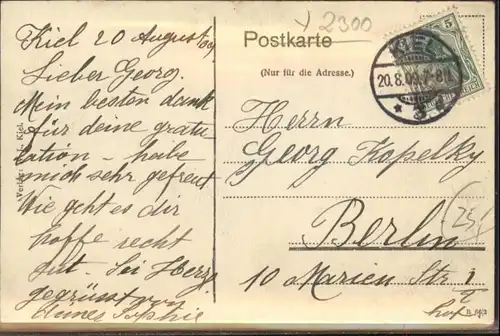 Kiel 20 August 09.
Lieber Georg.
Mein besten dank
für deine gratu
lation – habe
mich sehr gefreut
Wie geht es dir
hoffe recht
gut. Sei Herzl.
gegrüsst von
Sophie
Verlag: Kiel.
2300
Postkarte
(Nur für die Adresse.)
5
KIEL
20.8.09. 7-8
* 3
Herrn
Georg Kopelky
Berlin
10 Marien Str